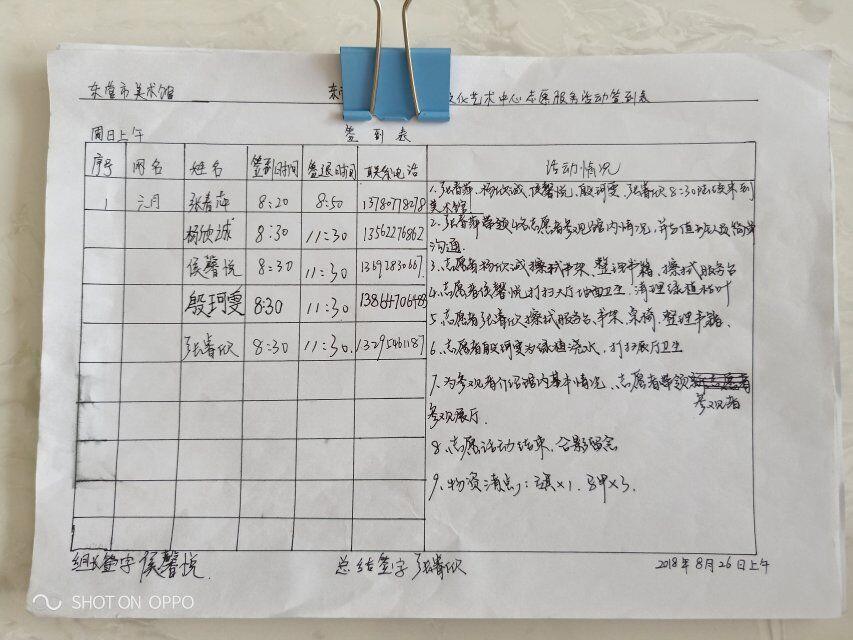 东营市美术馆 东 文化艺术中心志愿服务活动签到表
周日上午 签到表
序号 网名 姓名 签到时间 签退时间 联系电话 活动情况
1 元月 张春萍 8:20 8:50 13780778078
杨欣城 8:30 11:30 13562276862
侯馨悦 8:30 11:30 13692830667
殷珂雯 8:30 11:30 13864706488
张睿欣 8:30 11:30 13295461187
1、张春萍、杨欣诚、侯馨悦、殷珂雯、张睿欣8:30陆续来到
美术馆
2、张春萍带领4名志愿者参观馆内情况,并与值班人员简单
沟通.
3、志愿者杨欣诚擦拭书架、整理书籍、擦拭服务台
4、志愿者侯馨悦打扫大厅地面卫生、清理绿植枯叶
5、志愿者张睿欣擦拭服务台、书架、桌椅、整理书籍.
6、志愿者殷珂雯为绿植浇水,打扫展厅卫生
7、为参观者介绍馆内基本情况、志愿者带领
参观者
参观展厅.
8、志愿活动结束,合影留念
9、物资清点:旗×1.马甲×3.
组长签字 侯馨悦. 总结签字 张睿欣 2018年8月26日上午
SHOT ON OPPO